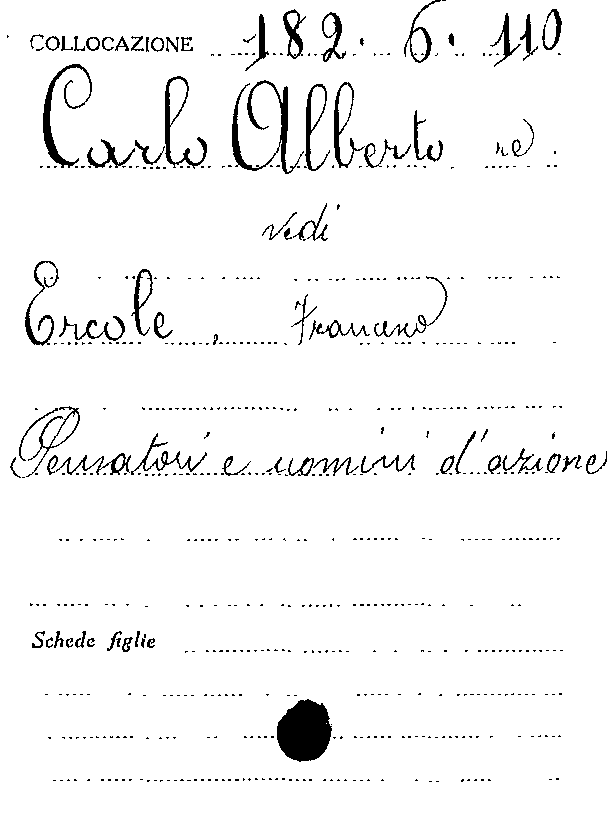 COLLOCAZIONE 182. 6. 110
Carlo Alberto re.
vedi
Ercole, Francesco
Pensatori e uomini d'azione
Schede figlie